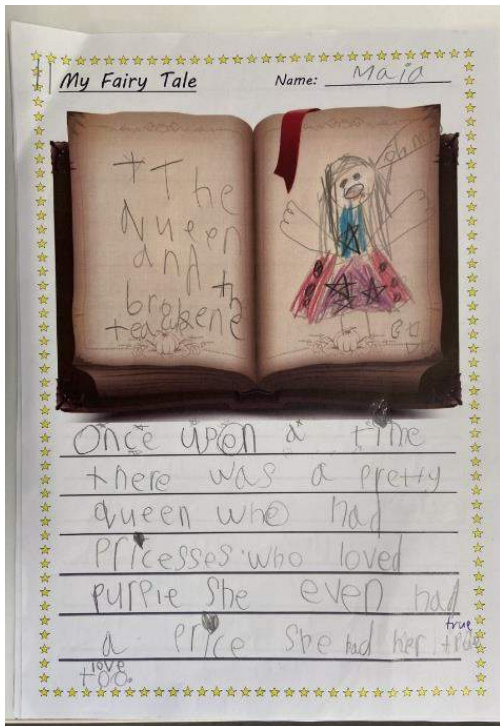 My Fairy Tale
Name: Maia
The
Queen
and th
broken
teacup
oh no
Once upon a time
there was a pretty
queen who had
pricesses who loved
purple she even had
a price she had her true
love
too.